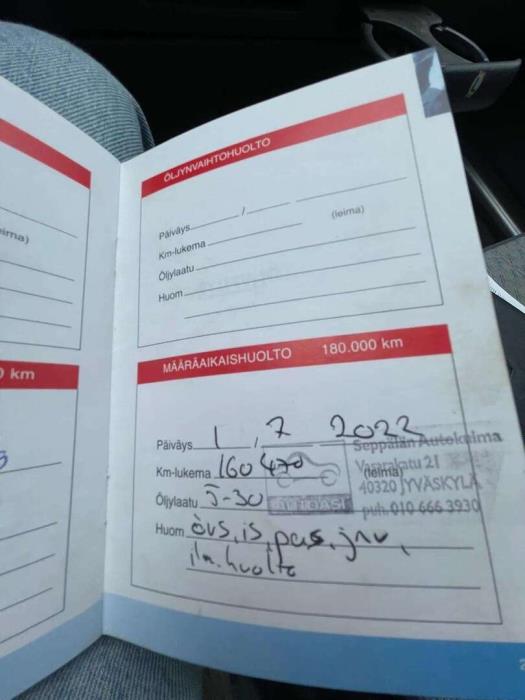 eima)
0 km
ÖLJYNVAIHTOHUOLTO
Päiväys / (leima)
Km-lukema
Öljylaatu
Huom
MÄÄRÄAIKAISHUOLTO 180.000 km
Päiväys 1 / 7 2022
Km-lukema 160 470 (leima)
Öljylaatu 5-30
Huom övs, is, pas, jnv,
ilm. huolto
Seppälän Autokolma
Vasarakatu 21
40320 JYVÄSKYLÄ
puh. 010 666 3930